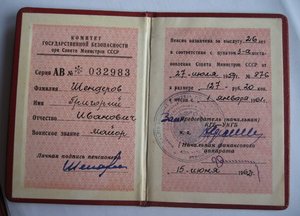 КОМИТЕТ
ГОСУДАРСТВЕННОЙ БЕЗОПАСНОСТИ
при Совете Министров СССР
Серия АВ № 032983
Фамилия Шендеров
Имя Григорий
Отчество Иванович
Воинское звание майор.
Личная подпись пенсионера
Пенсия назначена за выслугу 26 лет
в соответствии с пунктом
Совета Министров СССР
27 июля 1959г. № 876
в размере 127 руб. 20 коп.
в месяц с 1 января
Зам председатель (начальник)
КГБ—УКГБ
(Начальник финансового
аппарата)
15 июня